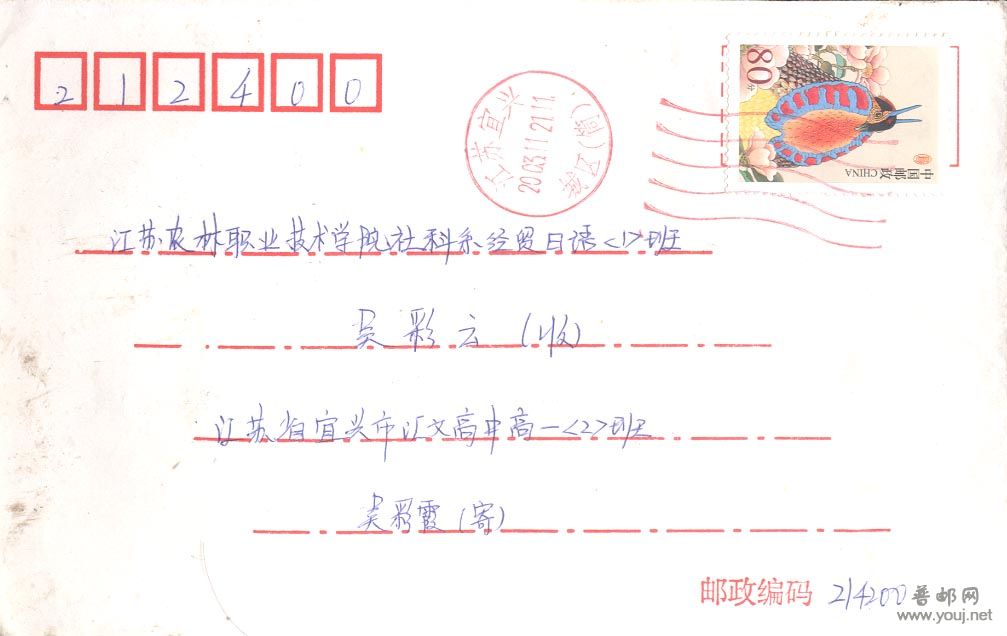 212400
江苏宜兴
2003.11.21.11
城区(商)
80分
中国邮政 CHINA
江苏农林职业技术学院社科系经贸日语<1>班
吴彩云(收)
江苏省宜兴市汇文高中高一<2>班
吴彩霞(寄)
邮政编码 214200
普邮网
www.youj.net